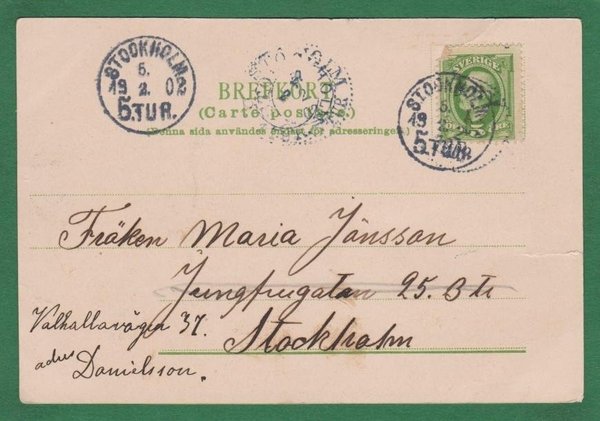 STOCKHOLM 2
5.
19 2. 02
5.TUR.
STOCKHOLM
BREFKORT
(Carte postale)
(Denna sida användes endast för adresseringen.)
SVERIGE
STOCKHOLM
5.
19 2.
5.TUR.
Fröken Maria Jönsson
Jungfrugatan 25. B tr
Stockholm
Valhallavägen 37.
adrs
Danielsson.